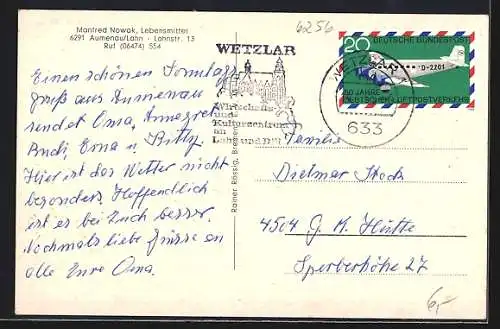 Manfred Nowak, Lebensmittel
6291 Aumenau/Lahn - Lahnstr. 13
Ruf (06474) 554
6256
WETZLAR
Wirtschafts-
und
Kulturzentrum
an
Lahn und Dill
WETZLAR
633
20 DEUTSCHE BUNDESPOST
D-2201
50 JAHRE
DEUTSCHER LUFTPOSTVERKEHR
Einen schönen Sonntags
gruß aus Aumenau
sendet Oma, Annegret
Rudi, Erna u.
Hier ist das Wetter nicht
besonders. Hoffendlich
ist es bei Euch besser.
Nochmals liebe Grüsse an
alle Eure Oma.
Rainer Rössig, Bremen
Familie
Dietmar
4504 G. M. Hütte
Sperberhöhe 27
6,-